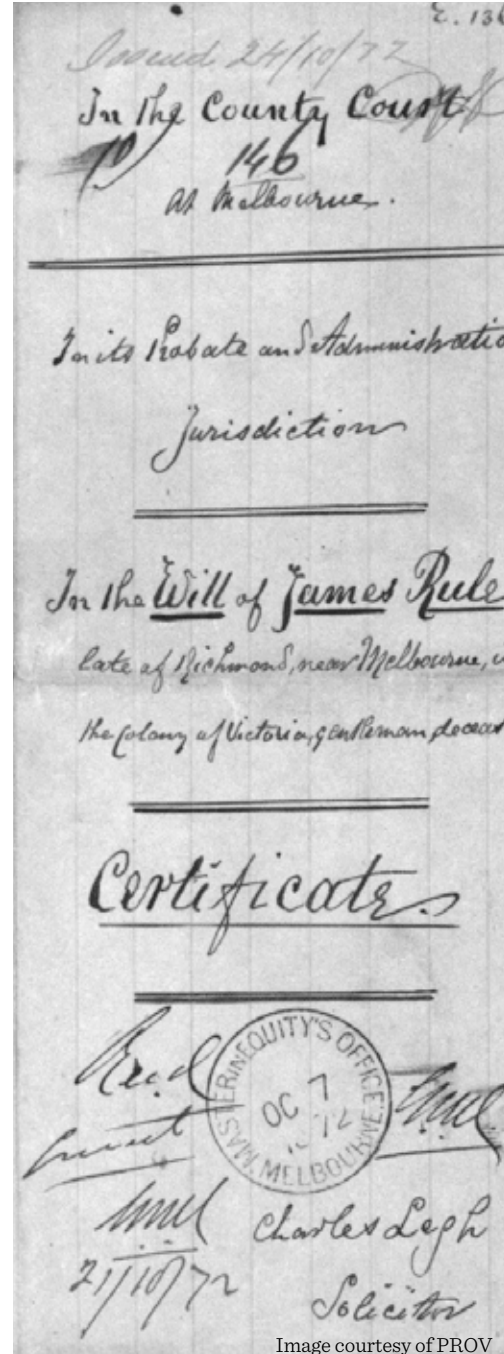 Issued 24/10/72
In the County Court
146
At Melbourne.
In its Probate and Administratio
Jurisdiction
In the Will of James Rule
late of Richmond, near Melbourne, in
the Colony of Victoria, gentleman, deceas
Certificate.
MASTER IN EQUITY'S OFFICE.
OC 7
72
MELBOURNE.
21/10/72
Charles Legh
Solicitor
Image courtesy of PROV